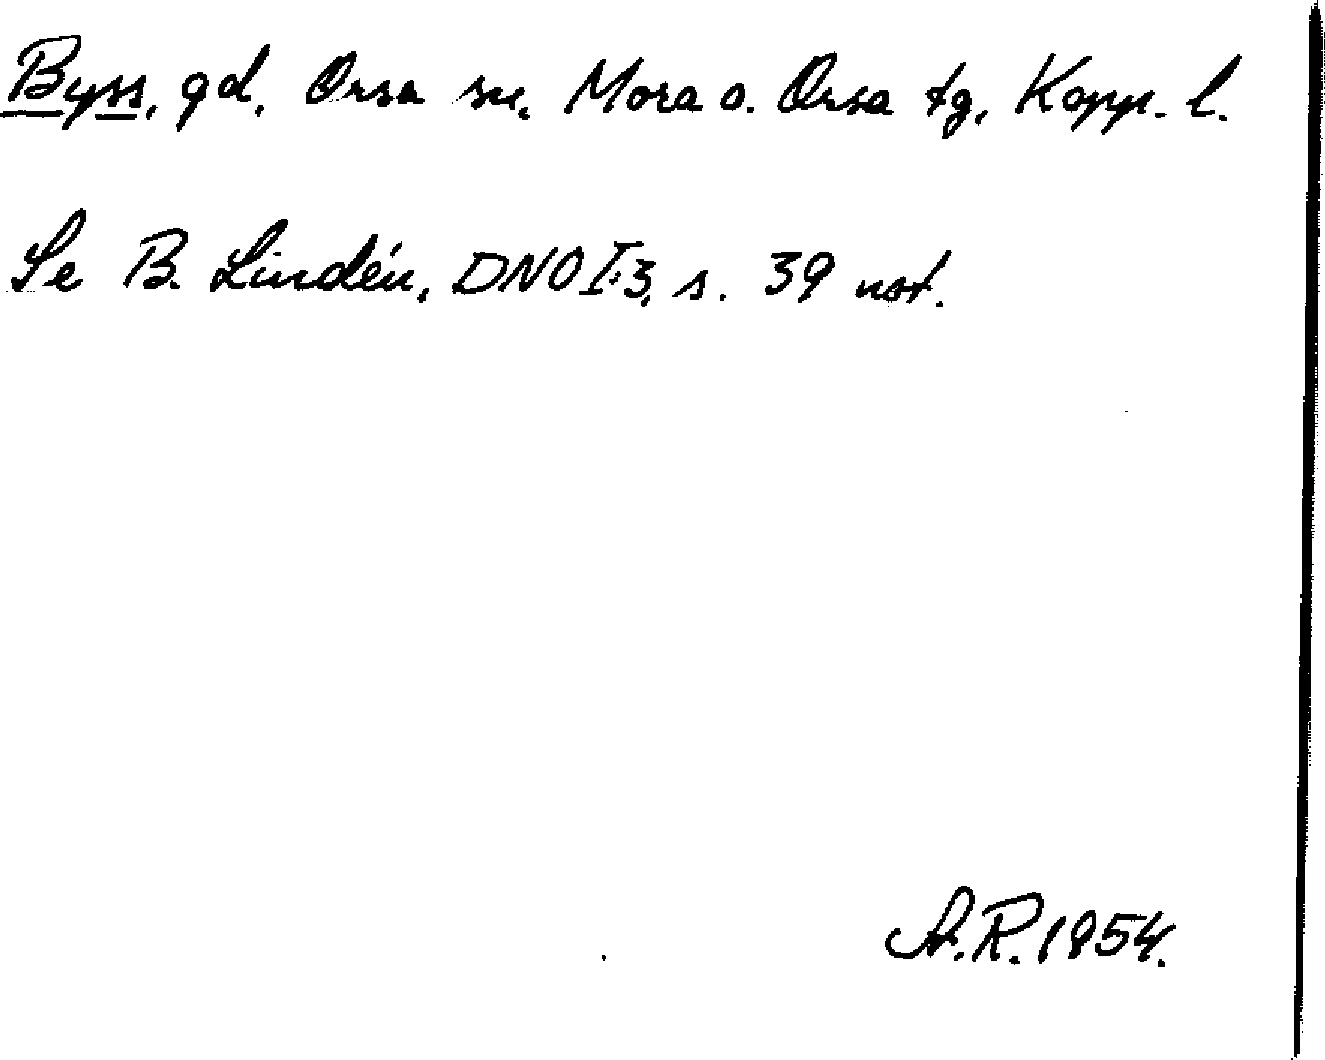 Byss, gd, Orsa sn, Mora o. Orsa tg, Kopp. l.
Se B. Lindén, DNO I:3, s. 39 not.
A.R. 1954.